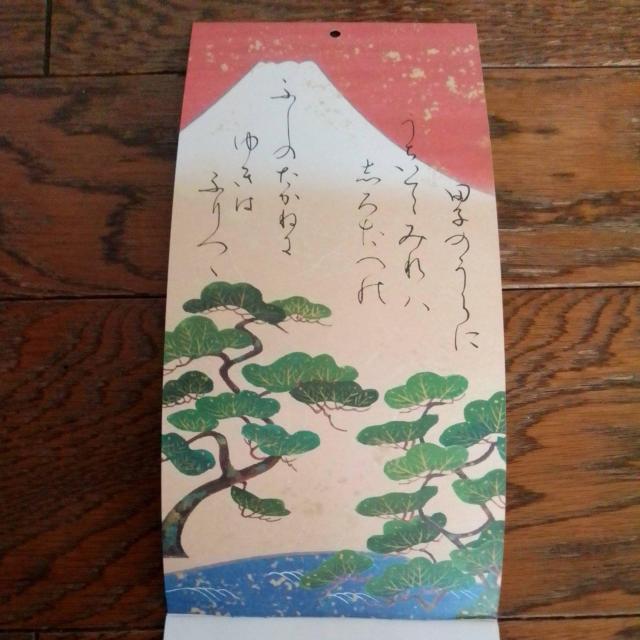 田子のうらに
うちいてゝみれハ
しろたへの
ふしのたかねに
ゆきは
ふりつゝ